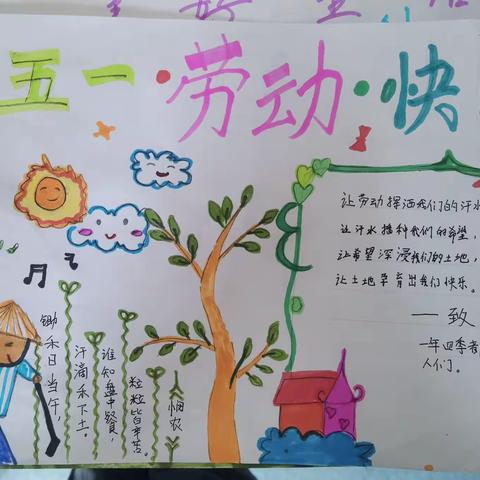 五一·劳动·快
让劳动挥洒我们的汗水
让汗水播种我们的希望，
让希望浸漫我们的土地，
让土地孕育出我们快乐。
一致
一年四季
人们。
锄禾日当午
汗滴禾下土。
谁知盘中餐，
粒粒皆辛苦。
悯农